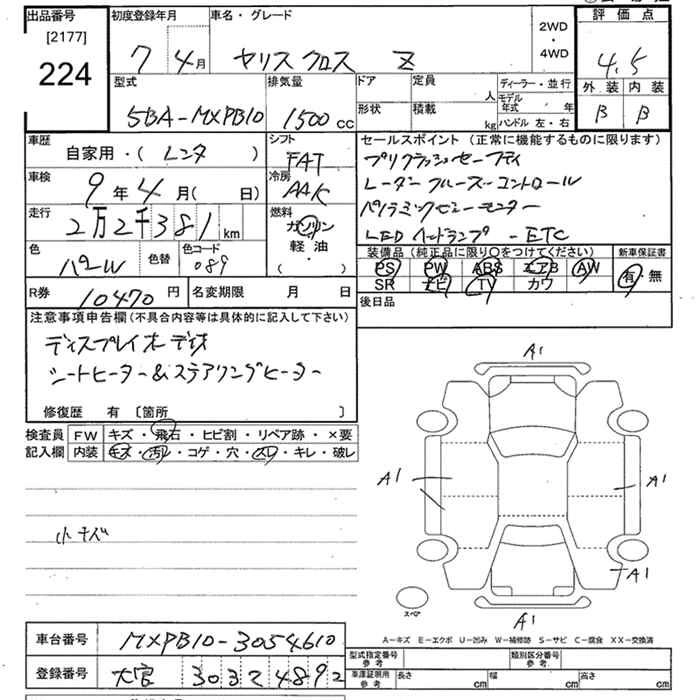 出品番号 初度登録年月 車名・グレード 評価点
[2177] 2WD
224 7 4月 ヤリスクロス Z ・ 4.5
4WD 外装 内装
型式 排気量 ドア 定員 人 ディーラー・並行 B B
5BA-MXPB10 1500cc 形状 積載 kg モデル年式 年
ハンドル 左・右
車歴 シフト セールスポイント (正常に機能するものに限ります)
自家用・( レンタ ) FAT プリクラッシュセーフティ
車検 冷房 レーダークルーズコントロール
9年4月( 日) AAK パノラミックビューモニター
走行 燃料 LEDヘッドランプ - ETC
2万2千381km ガソリン
軽油
( ・ )
色 色替 色コード 装備品 (純正品に限り○をつけてください) 新車保証書
パール 089 PS PW ABS エアB AW 有・無
SR ナビ TV カワ
R券 10470円 名変期限 月 日 後日品
注意事項申告欄(不具合内容等は具体的に記入して下さい)
ディスプレイオーディオ
シートヒーター&ステアリングヒーター
修復歴 有 〔箇所 〕
検査員 FW キズ・飛石・ヒビ割・リペア跡・×要
記入欄 内装 キズ・汚レ・コゲ・穴・スレ・キレ・破レ
A1
A1 A1
小キズ
A1
スペア
A1
A-キズ E-エクボ U-凹み W-補修跡 S-サビ C-腐食 XX-交換済
車台番号 MXPB10-3054610
型式指定番号 参考 類別区分番号 参考
登録番号 大宮 303て4892
車庫証明用 参考 長さ cm 幅 cm 高さ cm